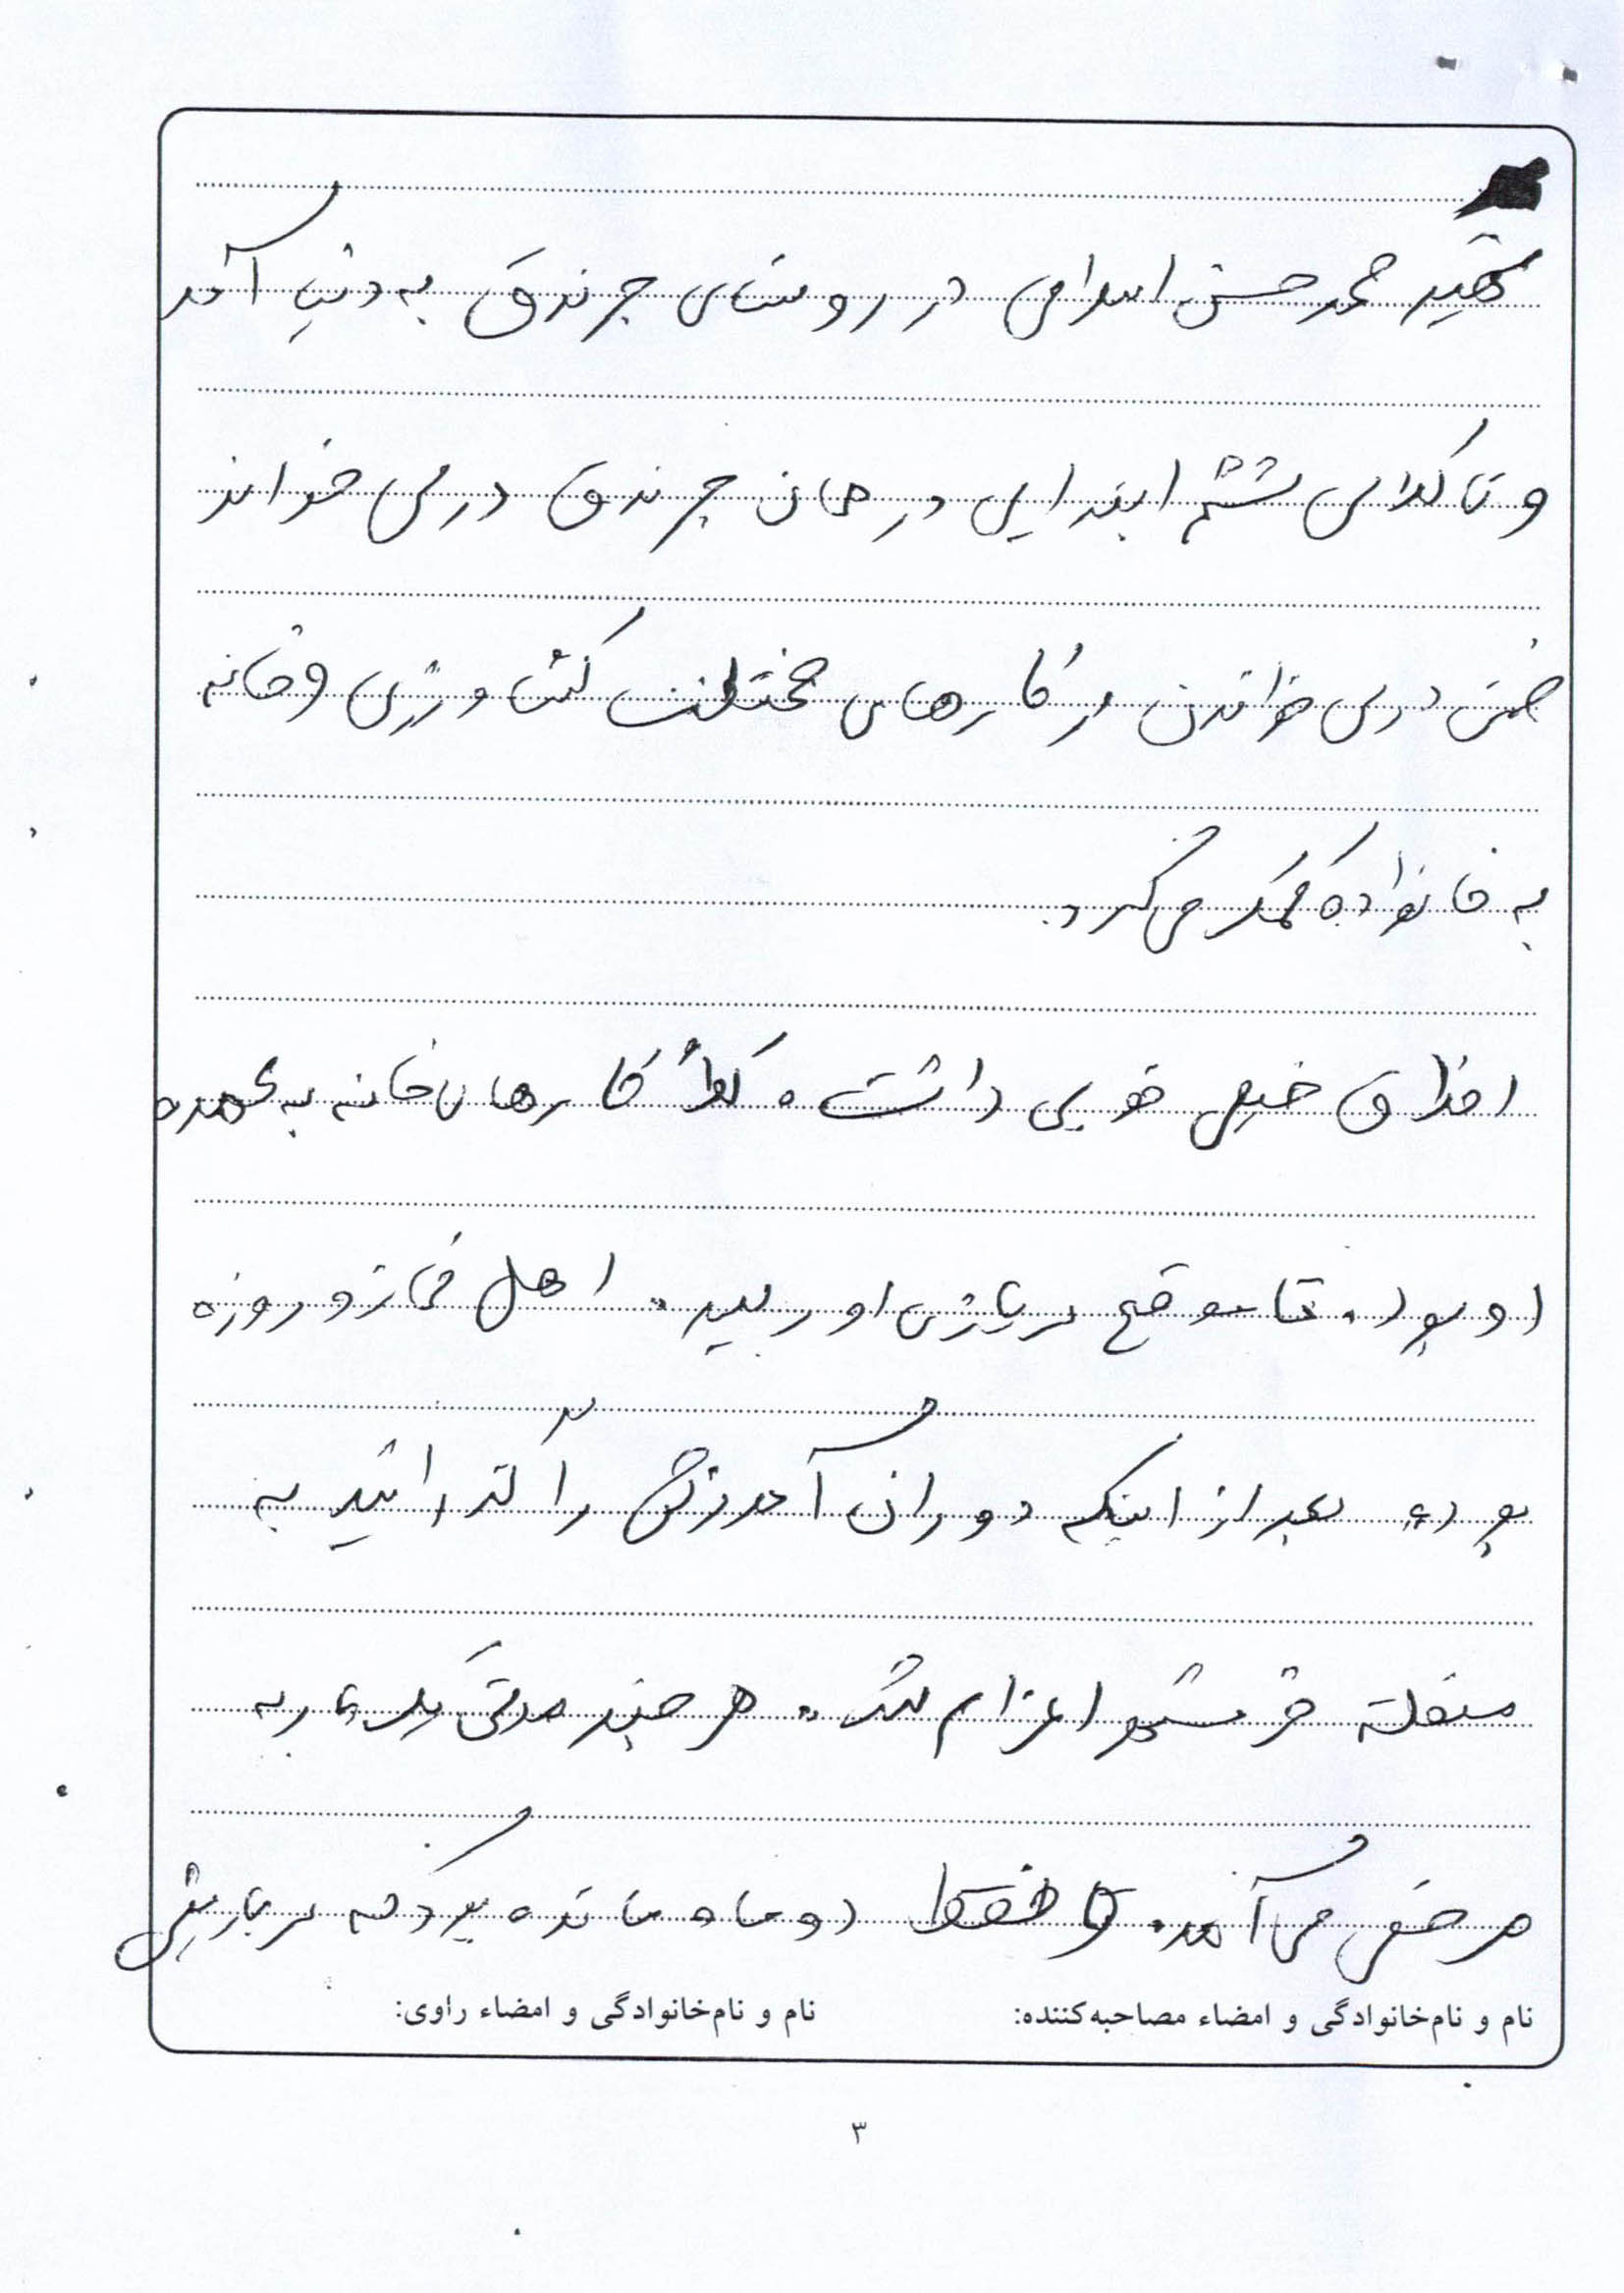 شهید محمدحسن اسلامی در روستای جرندق به دنیا آمد
و تا کلاس ششم ابتدایی در همان جرندق درس خواند
ضمن درس خواندن در کارهای مختلف کشاورزی و خانه
به خانواده کمک می‌کرد.
اخلاق خیلی خوبی داشت. کلاً کارهای خانه به عهده
او بود. تا موقع سربازی او رسید. اهل نماز و روزه
بود. بعد از اینکه دوران آموزشی را گذراند به
منطقه خرمشهر اعزام شد. هر چند مدتی یکبار به
مرخصی می‌آمد. فقط دو ماه مانده بود که سربازیش
نام و نام‌خانوادگی و امضاء مصاحبه‌کننده: نام و نام‌خانوادگی و امضاء راوی:
۳